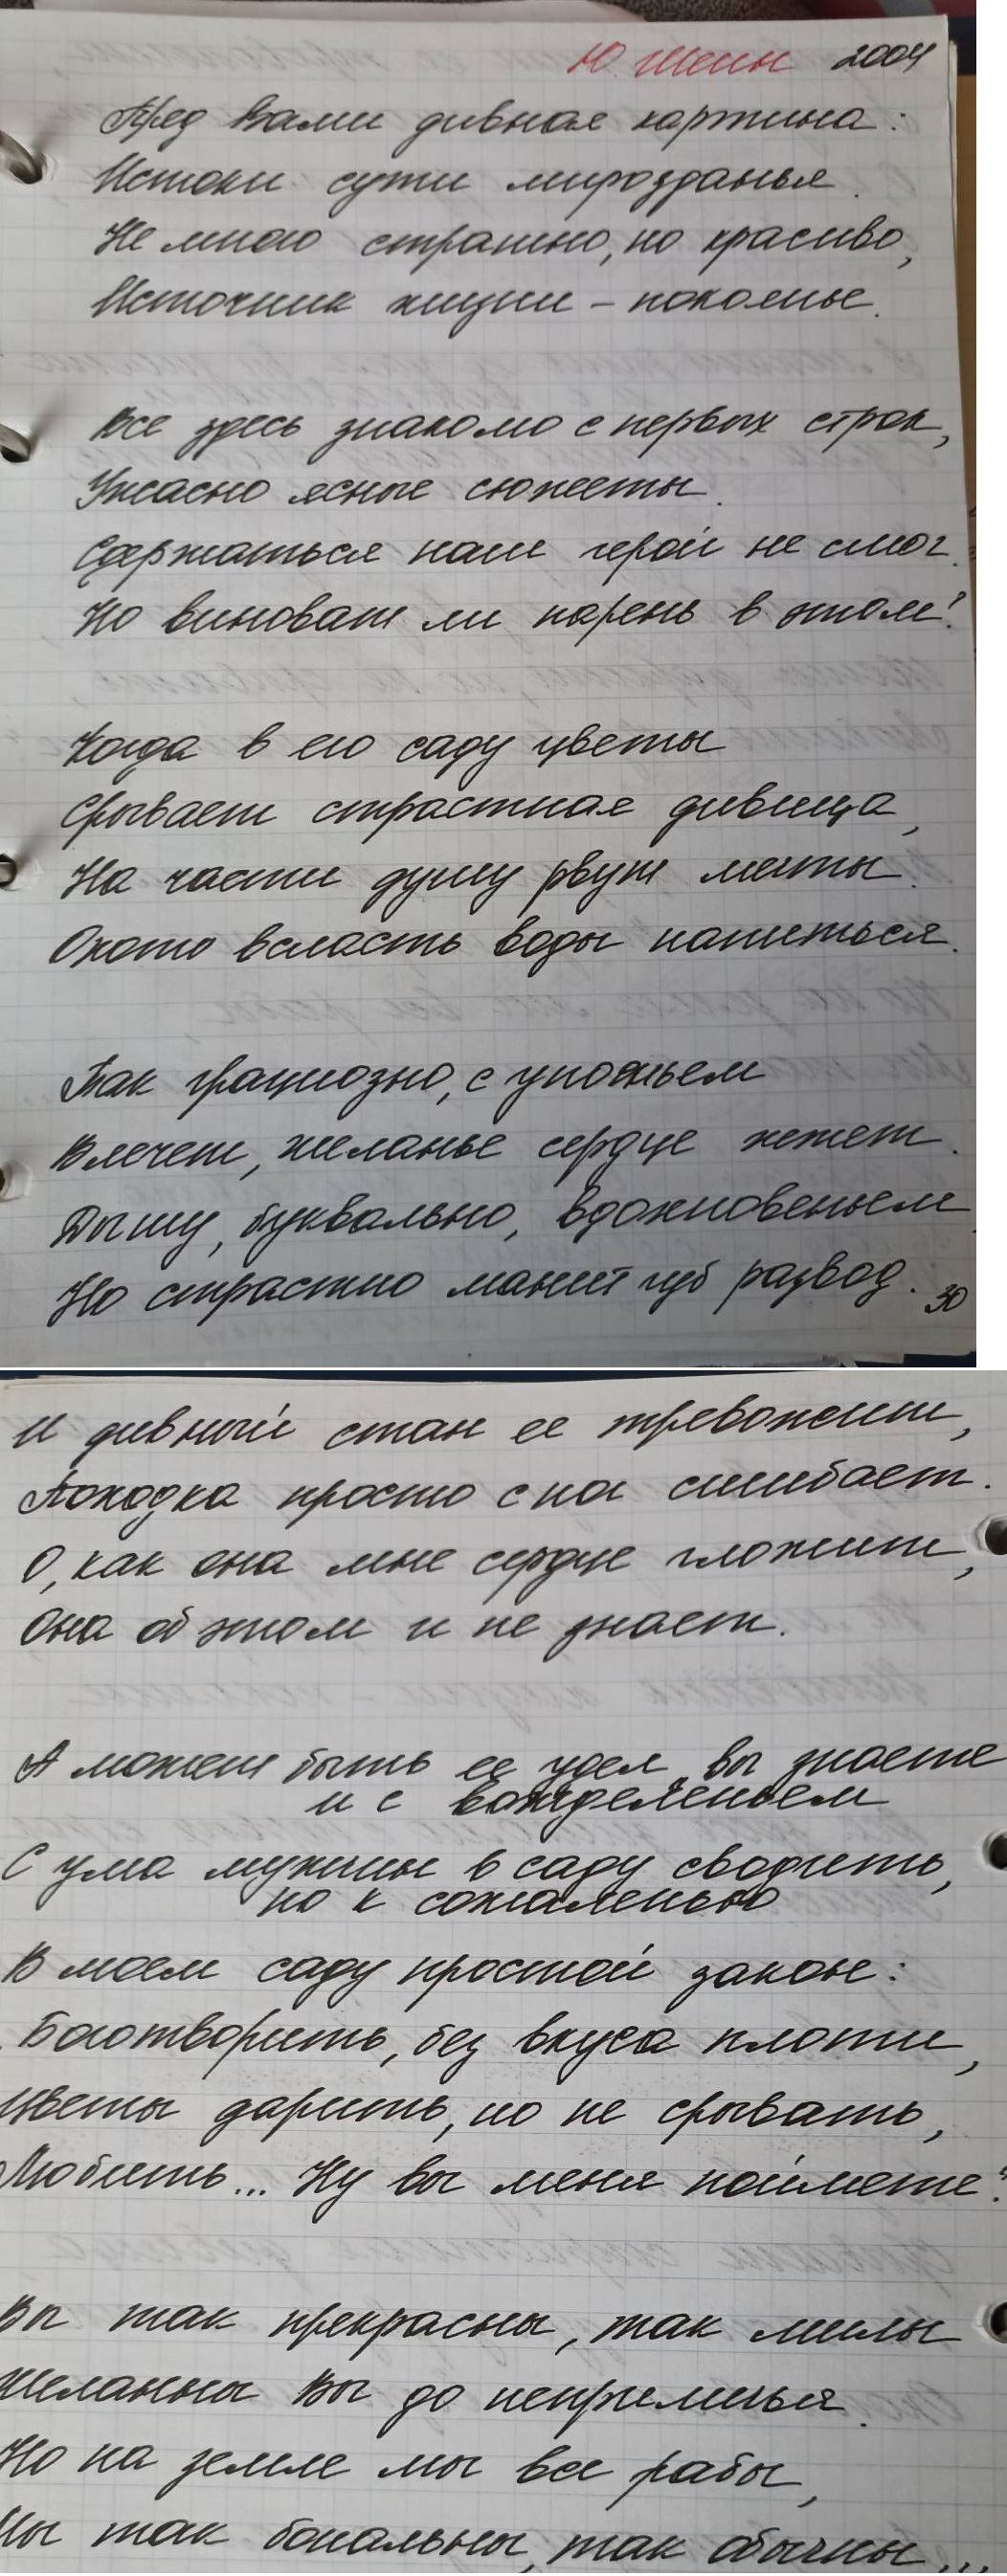 Ю. Шеин 2004
Пред Вами дивная картина:
Истоки сути мирозданья.
Не много страшно, но красиво,
Источник жизни – познанье.
Все здесь знакомо с первых строк,
Ужасно ясные сюжеты.
Сдержаться наш герой не смог.
Но виноват ли парень в этом?
Когда в его саду цветы
Срывает страстная девица,
На части душу рвут мечты.
Охото всласть воды напиться.
Так грациозно, с упоеньем
Влечет, желанье сердце жжет.
Дышу, буквально, вдохновеньем
Но страстно манит губ развод.
30
И дивный стан ее тревожит,
Походка просто с ног сшибает.
О, как она мне сердце гложит,
Она об этом и не знает.
А может быть ее удел, вы знаете
и с вожделеньем
С ума мужчин в саду сводить,
но к сожаленью
В моем саду простой закон:
Боготворить, без вкуса плоти,
Цветы дарить, но не срывать,
Любить... Ну вы меня поймете?
Вы так прекрасны, так милы
Желанны Вы до неприличья.
Но на земле мы все рабы,
Мы так банальны, так обычны...